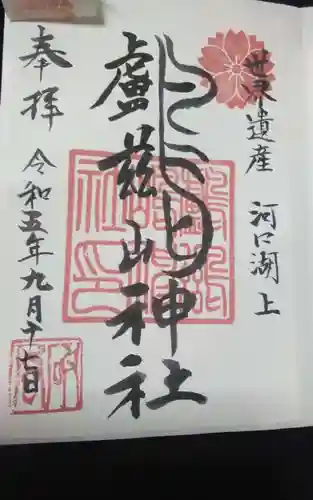 世界遺産 河口湖上
鸕鶿嶋神社
奉拝 令和五年九月十七日